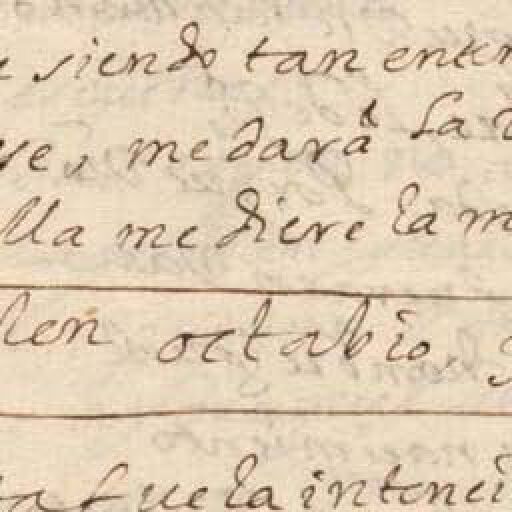 siendo tan enten
me dara la
lla me diere la m
len octabio,
ta fue la intenci